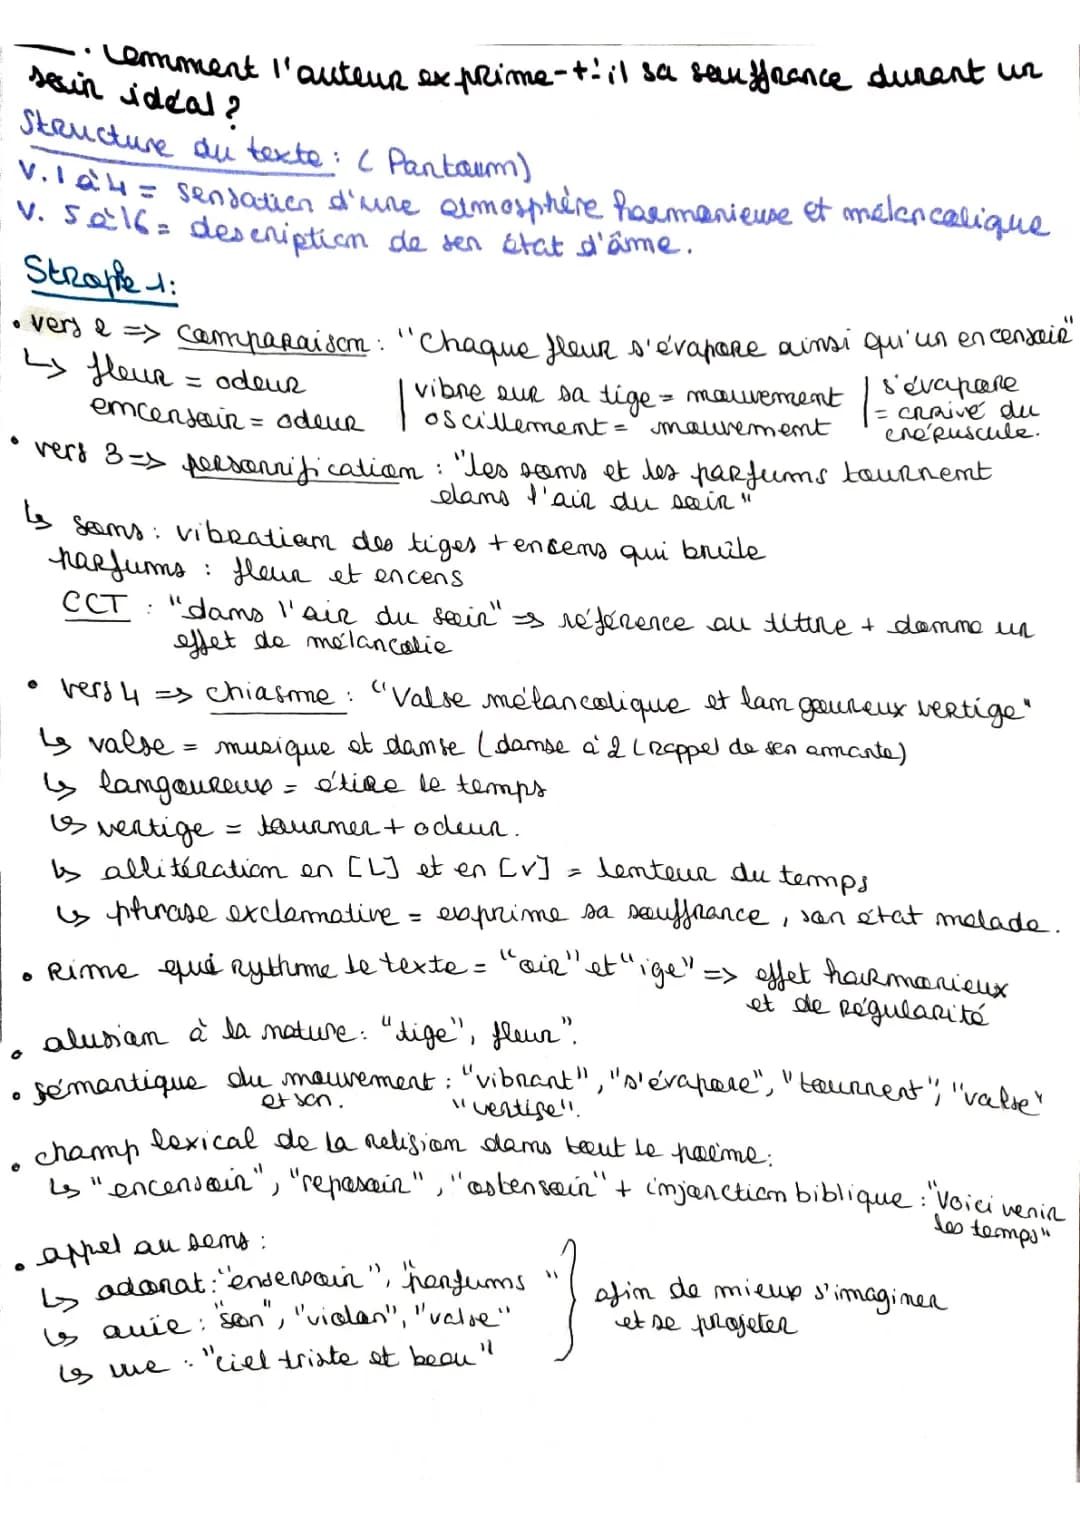 Comment l'auteur exprime-t-il sa souffrance durant un
soir idéal ?
Structure du texte : ( Pantoum)
V. 1 à 4 = sensation d'une atmosphère harmonieuse et mélancolique
V. 5 à 16 = description de son état d'âme.
Strophe 1:
• vers 2 => comparaison : "Chaque fleur s'évapore ainsi qu'un encensoir"
↳ fleur = odeur | vibre sur sa tige = mouvement | s'évapore
encensoir = odeur | oscillement = mouvement | = arrivé du
crépuscule.
• vers 3 => personnification : "les sons et les parfums tournent
dans l'air du soir"
↳ sons : vibration des tiges + encens qui brûle
parfums : fleur et encens
CCT : "dans l'air du soir" => référence au titre + donne un
effet de mélancolie
• vers 4 => chiasme : "Valse mélancolique et langoureux vertige"
↳ valse = musique et danse (danse à 2 (rappel de son amante)
↳ langoureux = étire le temps
↳ vertige = tourner + odeur.
↳ allitération en [L] et en [v] = lenteur du temps
↳ phrase exclamative = exprime sa souffrance, son état malade.
• Rime qui rythme le texte = "oir" et "ige" => effet harmonieux
et de régularité
• alusion à la nature : "tige", fleur".
• sémantique du mouvement : "vibrant", "s'évapore", "tournent", "valse"
et son. "vertige".
• champ lexical de la religion dans tout le poème :
↳ "encensoir", "reposoir", "ostensoir" + injonction biblique : "Voici venir
les temps"
• appel au sens :
↳ odorat : "encensoir", "parfums"
↳ ouïe : "son", "violon", "valse"
↳ vue : "ciel triste et beau"
afin de mieux s'imaginer
et se projeter